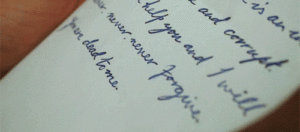 is an
and corrupt.
help you and I will
never, never forgive.
You're dead to me.